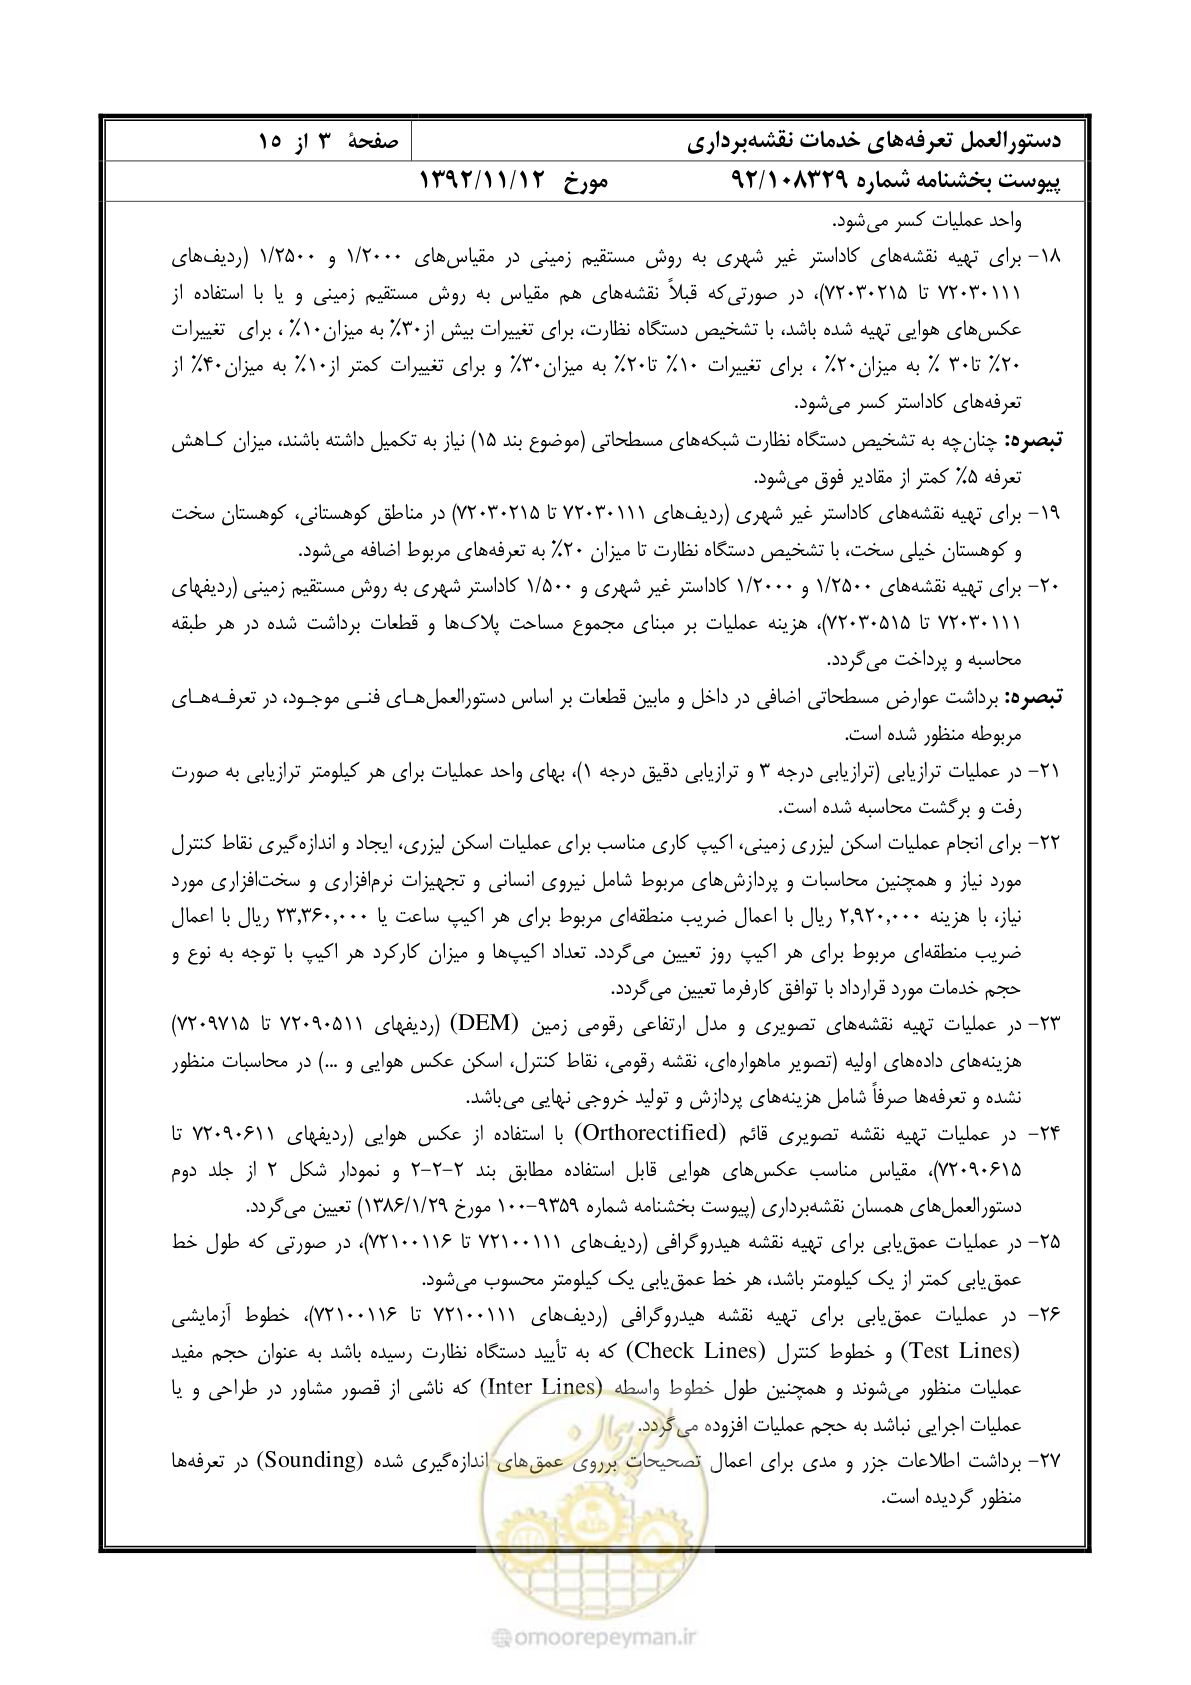 دستورالعمل تعرفه‌های خدمات نقشه‌برداری
صفحۀ ۳ از ۱۵
پیوست بخشنامه شماره ۹۲/۱۰۸۳۲۹ مورخ ۱۳۹۲/۱۱/۱۲
واحد عملیات کسر می‌شود.
۱۸- برای تهیه نقشه‌های کاداستر غیر شهری به روش مستقیم زمینی در مقیاس‌های ۱/۲۰۰۰ و ۱/۲۵۰۰ (ردیف‌های
۷۲۰۳۰۱۱۱ تا ۷۲۰۳۰۲۱۵)، در صورتی‌که قبلاً نقشه‌های هم مقیاس به روش مستقیم زمینی و یا با استفاده از
عکس‌های هوایی تهیه شده باشد، با تشخیص دستگاه نظارت، برای تغییرات بیش از۳۰٪ به میزان۱۰٪ ، برای تغییرات
۲۰٪ تا۳۰ ٪ به میزان۲۰٪ ، برای تغییرات ۱۰٪ تا۲۰٪ به میزان۳۰٪ و برای تغییرات کمتر از۱۰٪ به میزان۴۰٪ از
تعرفه‌های کاداستر کسر می‌شود.
تبصره: چنان‌چه به تشخیص دستگاه نظارت شبکه‌های مسطحاتی (موضوع بند ۱۵) نیاز به تکمیل داشته باشند، میزان کـاهش
تعرفه ۵٪ کمتر از مقادیر فوق می‌شود.
۱۹- برای تهیه نقشه‌های کاداستر غیر شهری (ردیف‌های ۷۲۰۳۰۱۱۱ تا ۷۲۰۳۰۲۱۵) در مناطق کوهستانی، کوهستان سخت
و کوهستان خیلی سخت، با تشخیص دستگاه نظارت تا میزان ۲۰٪ به تعرفه‌های مربوط اضافه می‌شود.
۲۰- برای تهیه نقشه‌های ۱/۲۵۰۰ و ۱/۲۰۰۰ کاداستر غیر شهری و ۱/۵۰۰ کاداستر شهری به روش مستقیم زمینی (ردیفهای
۷۲۰۳۰۱۱۱ تا ۷۲۰۳۰۵۱۵)، هزینه عملیات بر مبنای مجموع مساحت پلاک‌ها و قطعات برداشت شده در هر طبقه
محاسبه و پرداخت می‌گردد.
تبصره: برداشت عوارض مسطحاتی اضافی در داخل و مابین قطعات بر اساس دستورالعمل‌هـای فنـی موجـود، در تعرفـه‌هـای
مربوطه منظور شده است.
۲۱- در عملیات ترازیابی (ترازیابی درجه ۳ و ترازیابی دقیق درجه ۱)، بهای واحد عملیات برای هر کیلومتر ترازیابی به صورت
رفت و برگشت محاسبه شده است.
۲۲- برای انجام عملیات اسکن لیزری زمینی، اکیپ کاری مناسب برای عملیات اسکن لیزری، ایجاد و اندازه‌گیری نقاط کنترل
مورد نیاز و همچنین محاسبات و پردازش‌های مربوط شامل نیروی انسانی و تجهیزات نرم‌افزاری و سخت‌افزاری مورد
نیاز، با هزینه ۲,۹۲۰,۰۰۰ ریال با اعمال ضریب منطقه‌ای مربوط برای هر اکیپ ساعت یا ۲۳,۳۶۰,۰۰۰ ریال با اعمال
ضریب منطقه‌ای مربوط برای هر اکیپ روز تعیین می‌گردد. تعداد اکیپ‌ها و میزان کارکرد هر اکیپ با توجه به نوع و
حجم خدمات مورد قرارداد با توافق کارفرما تعیین می‌گردد.
۲۳- در عملیات تهیه نقشه‌های تصویری و مدل ارتفاعی رقومی زمین (DEM) (ردیفهای ۷۲۰۹۰۵۱۱ تا ۷۲۰۹۷۱۵)
هزینه‌های داده‌های اولیه (تصویر ماهواره‌ای، نقشه رقومی، نقاط کنترل، اسکن عکس هوایی و ...) در محاسبات منظور
نشده و تعرفه‌ها صرفاً شامل هزینه‌های پردازش و تولید خروجی نهایی می‌باشد.
۲۴- در عملیات تهیه نقشه تصویری قائم (Orthorectified) با استفاده از عکس هوایی (ردیفهای ۷۲۰۹۰۶۱۱ تا
۷۲۰۹۰۶۱۵)، مقیاس مناسب عکس‌های هوایی قابل استفاده مطابق بند ۲-۲-۲ و نمودار شکل ۲ از جلد دوم
دستورالعمل‌های همسان نقشه‌برداری (پیوست بخشنامه شماره ۹۳۵۹-۱۰۰ مورخ ۱۳۸۶/۱/۲۹) تعیین می‌گردد.
۲۵- در عملیات عمق‌یابی برای تهیه نقشه هیدروگرافی (ردیف‌های ۷۲۱۰۰۱۱۱ تا ۷۲۱۰۰۱۱۶)، در صورتی که طول خط
عمق‌یابی کمتر از یک کیلومتر باشد، هر خط عمق‌یابی یک کیلومتر محسوب می‌شود.
۲۶- در عملیات عمق‌یابی برای تهیه نقشه هیدروگرافی (ردیف‌های ۷۲۱۰۰۱۱۱ تا ۷۲۱۰۰۱۱۶)، خطوط آزمایشی
(Test Lines) و خطوط کنترل (Check Lines) که به تأیید دستگاه نظارت رسیده باشد به عنوان حجم مفید
عملیات منظور می‌شوند و همچنین طول خطوط واسطه (Inter Lines) که ناشی از قصور مشاور در طراحی و یا
عملیات اجرایی نباشد به حجم عملیات افزوده می‌گردد.
۲۷- برداشت اطلاعات جزر و مدی برای اعمال تصحیحات برروی عمق‌های اندازه‌گیری شده (Sounding) در تعرفه‌ها
منظور گردیده است.
امور پیمان
@omoorepeyman.ir